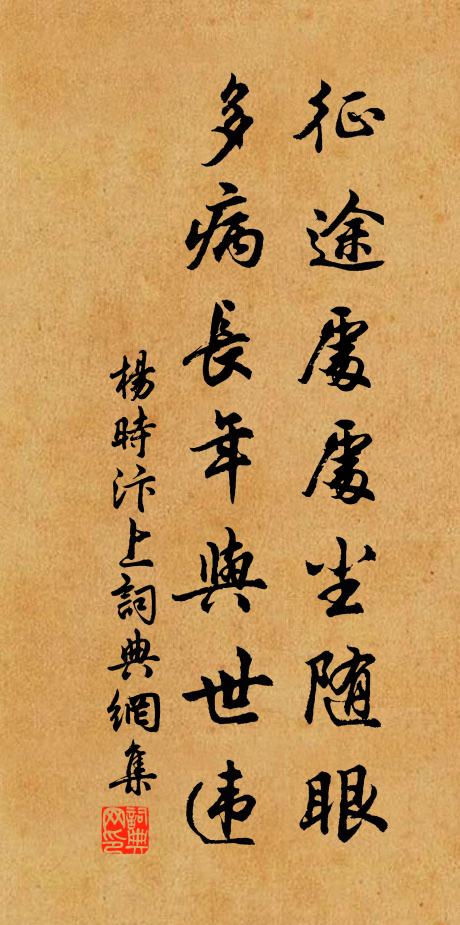 征途處處尘随眼
多病長年與世违
楊時汴上詞典網集
詞典网印